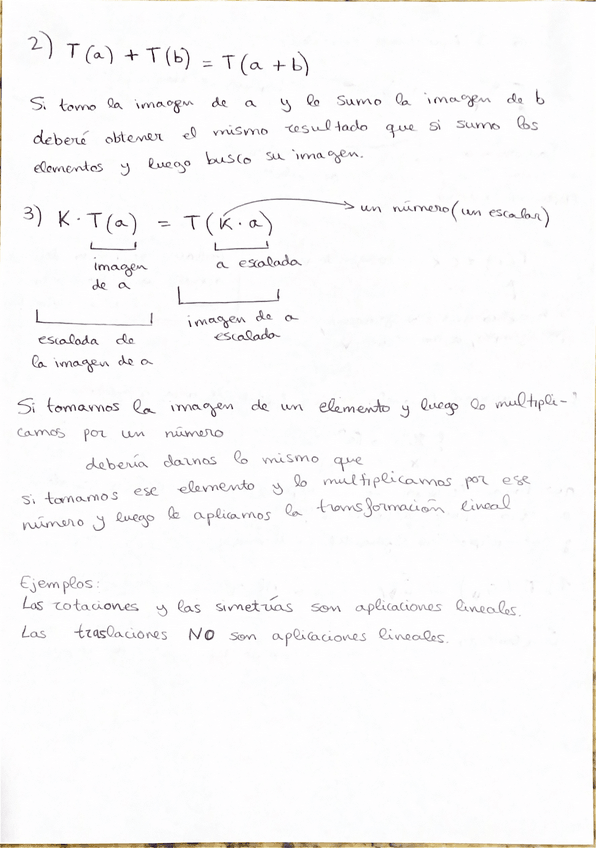 2) T(a) + T(b) = T(a + b)
Si tomo la imagen de a y le sumo la imagen de b
deberé obtener el mismo resultado que si sumo los
elementos y luego busco su imagen.
3) K · T(a) = T(K · a) → un número (un escalar)
imagen de a
a escalada
escalada de la imagen de a
imagen de a escalada
Si tomamos la imagen de un elemento y luego lo multipli-
camos por un número
debería darnos lo mismo que
si tomamos ese elemento y lo multiplicamos por ese
número y luego le aplicamos la transformación lineal
Ejemplos:
Las rotaciones y las simetrías son aplicaciones lineales.
Las traslaciones NO son aplicaciones lineales.